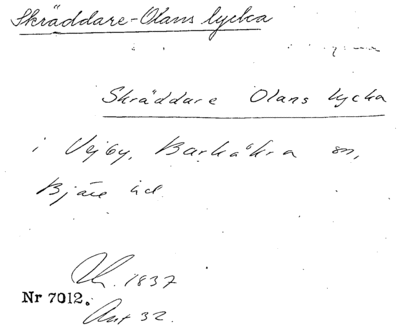 Skräddare-Olans lycka
Skräddare Olans lycka
i Vejby, Barkåkra sn,
Bjäre hd
1837
Nr 7012.
Ant 32.